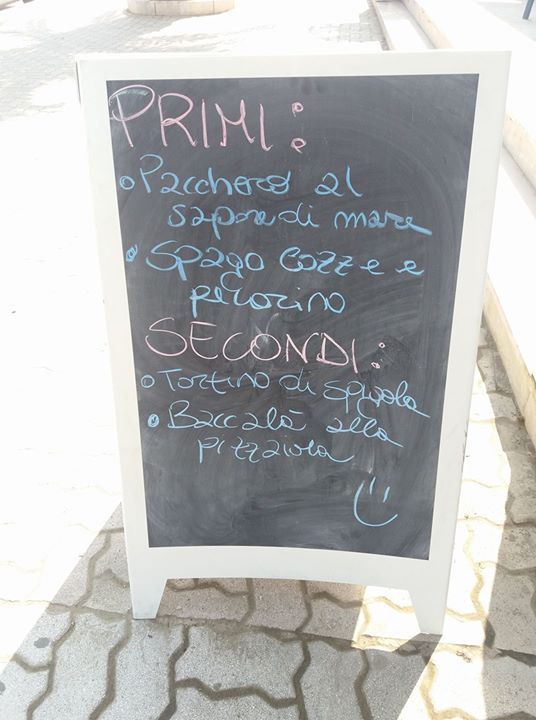 PRIMI:
Pacchero al
sapore di mare
Spago cozze e
pecorino
SECONDI:
Tortino di spigola
Baccalà alla
pizzaiola